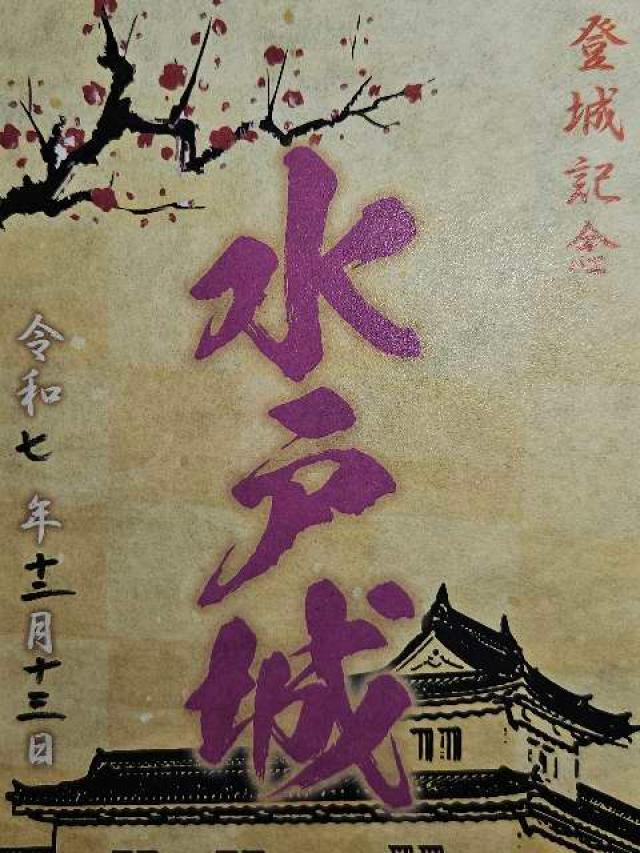 登城記念
水戸城
令和七年十二月十三日